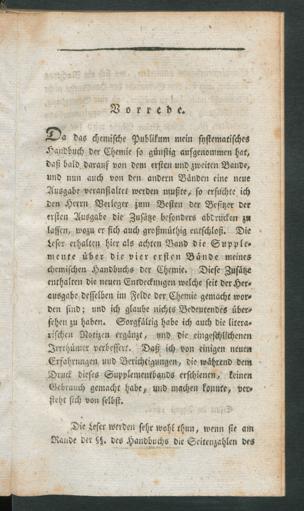 Vorrede.
Da das chemische Publikum mein systematisches
Handbuch der Chemie so günstig aufgenommen hat,
daß bald darauf von dem ersten und zweiten Bande,
und nun auch von den andern Bänden eine neue
Ausgabe veranstaltet werden mußte, so ersuchte ich
den Herrn Verleger zum Besten der Besitzer der
ersten Ausgabe die Zusätze besonders abdrucken zu
lassen, wozu er sich auch großmüthig entschloß. Die
Leser erhalten hier als achten Band die Supple-
mente über die vier ersten Bände meines
chemischen Handbuchs der Chemie. Diese Zusätze
enthalten die neuen Entdeckungen welche seit der Her-
ausgabe desselben im Felde der Chemie gemacht wor-
den sind; und ich glaube nichts Bedeutendes über-
sehen zu haben. Sorgfältig habe ich auch die litera-
rischen Notizen ergänzt, und die eingeschlichenen
Irrthümer verbessert. Daß ich von einigen neuen
Erfahrungen und Berichtigungen, die während dem
Druck dieses Supplementbands erschienen, keinen
Gebrauch gemacht habe, und machen konnte, ver-
steht sich von selbst.
Die Leser werden sehr wohl thun, wenn sie am
Rande der §§. des Handbuchs die Seitenzahlen des